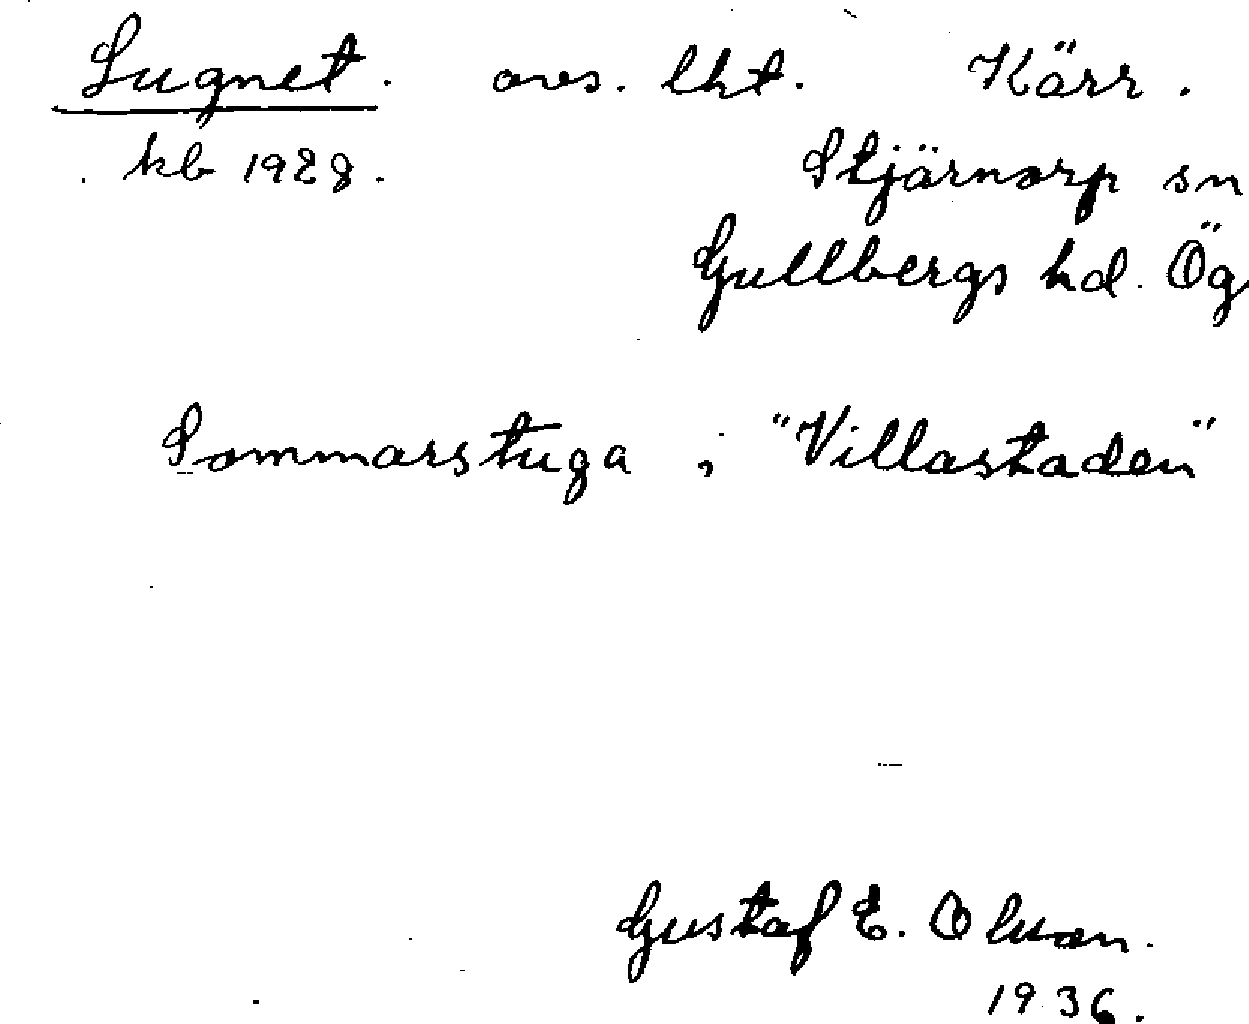 Lugnet. avs. lht. Kärr.
kb 1928.
Stjärnorp sn
Gullbergs hd. Ög
Sommarstuga i "Villastaden"
Gustaf E. Olsson.
1936.